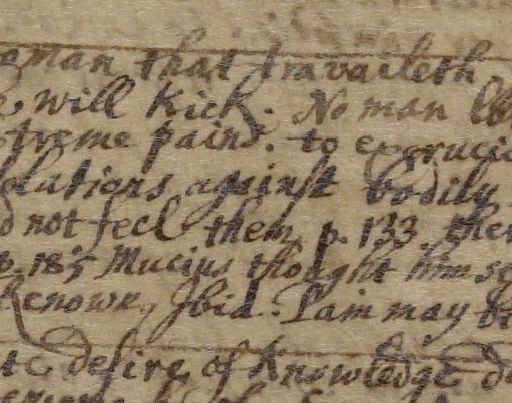 oman that travaileth
will Kick. No man
treme pains. to excrucia
olutions against bodily
d not feel them p. 133. ther
p. 185 Mucius thought himse
Renown, Ibid. Pain may be
desire of Knowledge